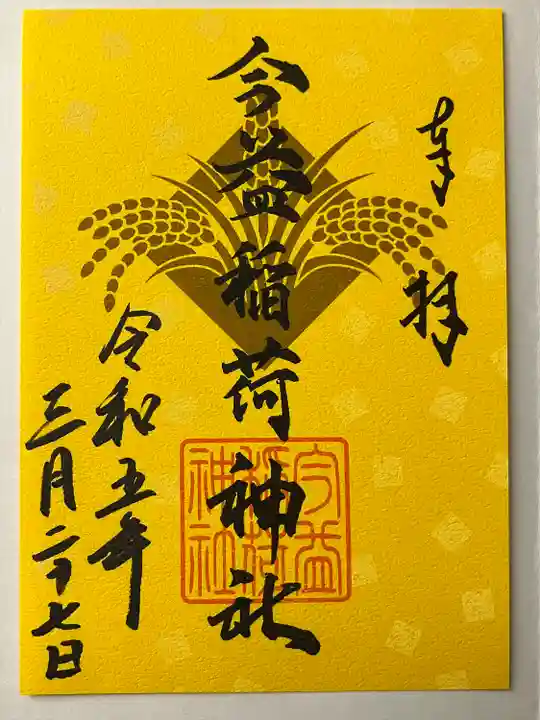 奉拝
今益稲荷神社
今益稲荷神社
令和五年
三月二十七日